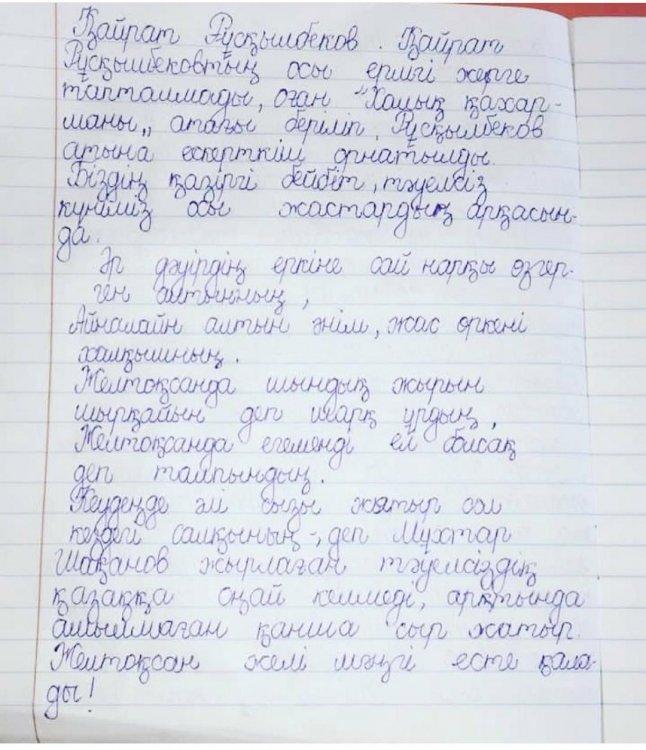 Қайрат Рысқылбеков. Қайрат
Рысқылбековтың осы ерлігі жерге
тапталмады, оған "Халық қахар-
маны„ атағы беріліп, Рысқылбеков
атына ескерткіш орнатылды.
Біздің қазіргі бейбіт, тәуелсіз
күніміз осы жастардың арқасын-
да.
Әр дәуірдің еркіне сай нарқы өзгер-
ген алтынның,
Айналайн алтын інім, жас өркені
халқымның.
Желтоқсанда шындық жырын
шырқайын деп шарқ ұрдың,
Желтоқсанда егеменді ел болсақ
деп талпындың.
Кеудеңде әлі сызы жатыр сол
кездегі салқынның-, деп Мұхтар
Шаханов жырлаған тәуелсіздік
қазаққа оңай келмеді, артында
ашылмаған қанша сыр жатыр.
Желтоқсан желі мәңгі есте қала-
ды!